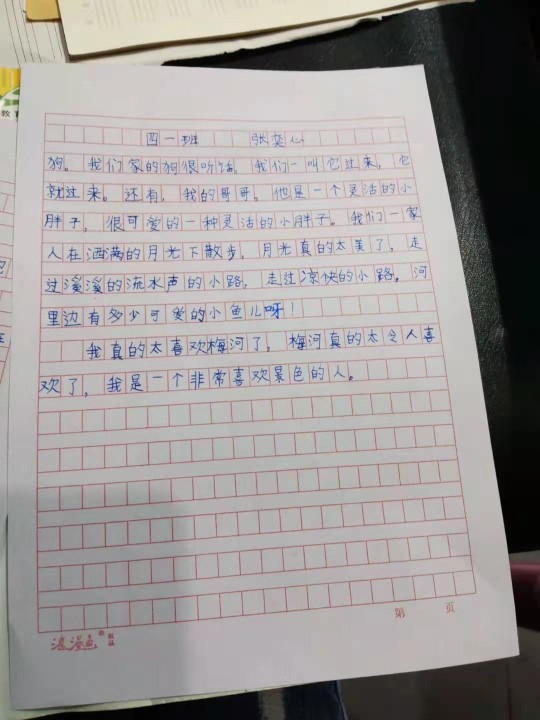 四一班 张奕心
狗。我们家的狗很听话，我们一叫它过来，它
就过来。还有，我的哥哥。他是一个灵活的小
胖子，很可爱的一种灵活的小胖子。我们一家
人在洒满的月光下散步，月光真的太美了，走
过溪溪的流水声的小路，走过凉快的小路。河
里边有多少可爱的小鱼儿呀！
我真的太喜欢梅河了，梅河真的太令人喜
欢了，我是一个非常喜欢景色的人。
第 页